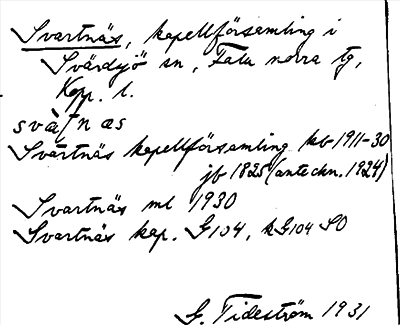 Svartnäs, kapellförsamling i
Svärdsjö sn, Falu norra tg,
Kopp. l.
Svartnäs kapellförsamling kb 1911-30
jb 1825 (anteckn. 1924)
Svartnäs ml 1930
Svartnäs kap. G104, kG104 SO
G. Tideström 1931